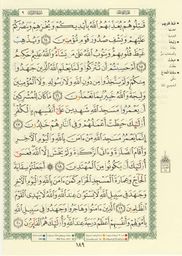 قَٰتِلُوهُمْ يُعَذِّبْهُمُ ٱللَّهُ بِأَيْدِيكُمْ وَيُخْزِهِمْ وَيَنصُرْكُمْ
عَلَيْهِمْ وَيَشْفِ صُدُورَ قَوْمٍ مُّؤْمِنِينَ ١٤ وَيُذْهِبْ
غَيْظَ قُلُوبِهِمْ وَيَتُوبُ ٱللَّهُ عَلَىٰ مَن يَشَآءُ وَٱللَّهُ عَلِيمٌ حَكِيمٌ
١٥ أَمْ حَسِبْتُمْ أَن تُتْرَكُوا۟ وَلَمَّا يَعْلَمِ ٱللَّهُ ٱلَّذِينَ جَٰهَدُوا۟
مِنكُمْ وَلَمْ يَتَّخِذُوا۟ مِن دُونِ ٱللَّهِ وَلَا رَسُولِهِۦ وَلَا ٱلْمُؤْمِنِينَ
وَلِيجَةً وَٱللَّهُ خَبِيرٌۢ بِمَا تَعْمَلُونَ ١٦ مَا كَانَ لِلْمُشْرِكِينَ
أَن يَعْمُرُوا۟ مَسَٰجِدَ ٱللَّهِ شَٰهِدِينَ عَلَىٰٓ أَنفُسِهِم بِٱلْكُفْرِ
أُو۟لَٰٓئِكَ حَبِطَتْ أَعْمَٰلُهُمْ وَفِى ٱلنَّارِ هُمْ خَٰلِدُونَ ١٧
إِنَّمَا يَعْمُرُ مَسَٰجِدَ ٱللَّهِ مَنْ ءَامَنَ بِٱللَّهِ وَٱلْيَوْمِ ٱلْءَاخِرِ
وَأَقَامَ ٱلصَّلَوٰةَ وَءَاتَى ٱلزَّكَوٰةَ وَلَمْ يَخْشَ إِلَّا ٱللَّهَ فَعَسَىٰٓ
أُو۟لَٰٓئِكَ أَن يَكُونُوا۟ مِنَ ٱلْمُهْتَدِينَ ١٨ أَجَعَلْتُمْ سِقَايَةَ
ٱلْحَآجِّ وَعِمَارَةَ ٱلْمَسْجِدِ ٱلْحَرَامِ كَمَنْ ءَامَنَ بِٱللَّهِ وَٱلْيَوْمِ ٱلْءَاخِرِ
وَجَٰهَدَ فِى سَبِيلِ ٱللَّهِ لَا يَسْتَوُۥنَ عِندَ ٱللَّهِ وَٱللَّهُ لَا يَهْدِى ٱلْقَوْمَ
ٱلظَّٰلِمِينَ ١٩ ٱلَّذِينَ ءَامَنُوا۟ وَهَاجَرُوا۟ وَجَٰهَدُوا۟ فِى سَبِيلِ ٱللَّهِ
بِأَمْوَٰلِهِمْ وَأَنفُسِهِمْ أَعْظَمُ دَرَجَةً عِندَ ٱللَّهِ وَأُو۟لَٰٓئِكَ هُمُ ٱلْفَآئِزُونَ ٢٠
١٨٩